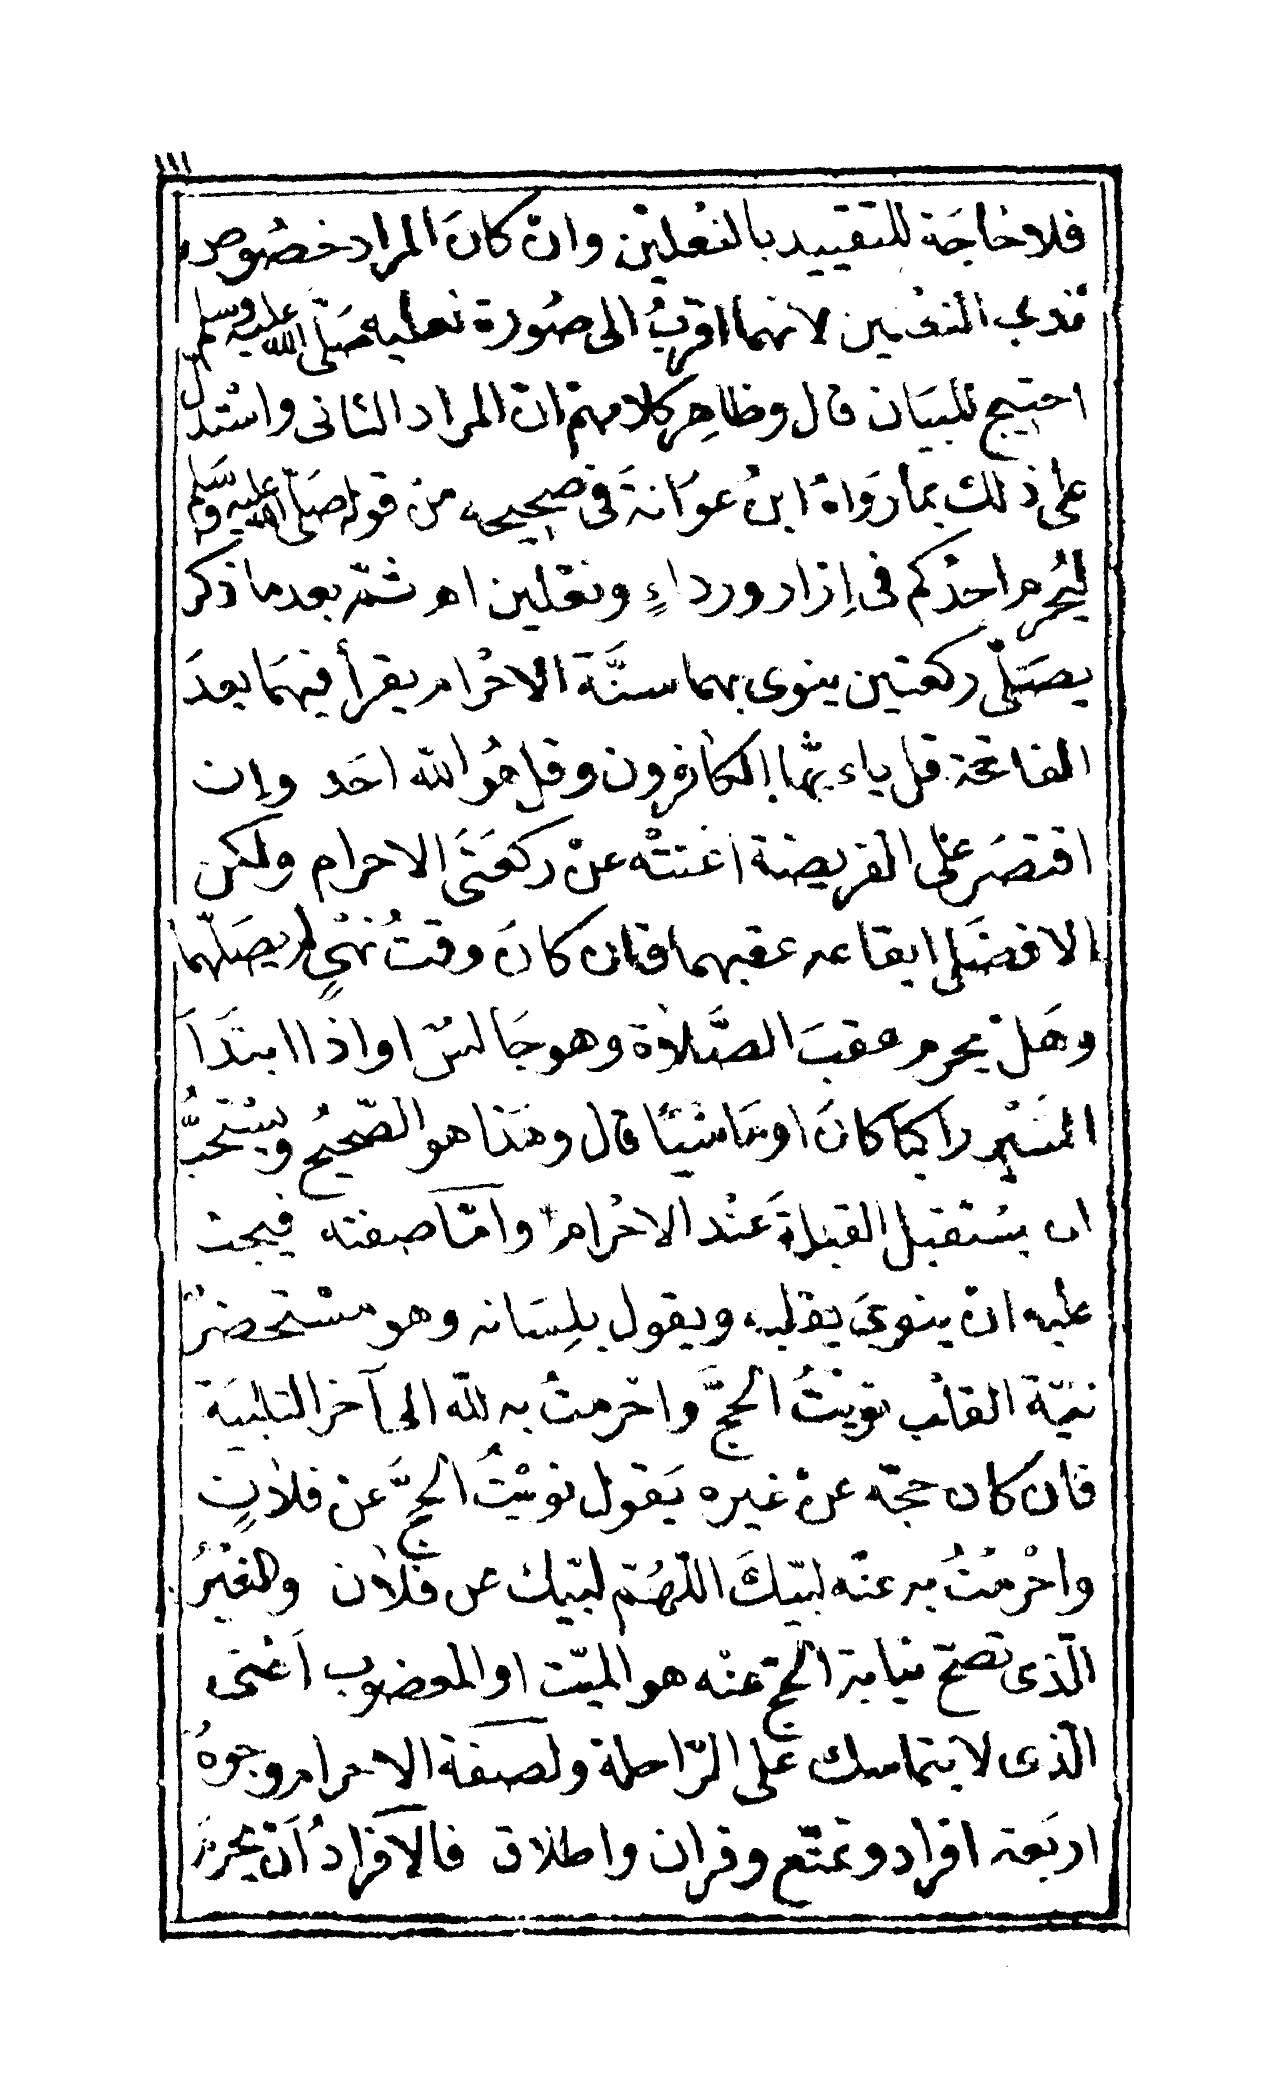 ١١١
فلا حَاجَة للتقييد بالنعْلين وان كانَ المراد خصُوص
هذى النعلين لانهما اقربُ الى صُورة نعليه صَلّى الله عليه وسلم
احتيج للبيَان قال وظاهر كلامهم ان المراد الثانى واسْتدلّ
على ذلك بما رَواهُ ابنُ عوَانةَ فى صحيحه من قوله صَلّى الله عليه وسَلم
ليُحرم احدكم فى اِزار ورداءٍ ونعْلين اه ثمّ بعد ما ذكر
يصَلّى ركعتين ينوى بهما سنَّة الاحْرام يقرأ فيهمَا بعدَ
الفاتحة قل ياءيّها الكافرون وقل هُو الله احَد وإن
اقتصَر على الفريضة اغنتْه عنْ ركعَتَى الاحرام ولكن
الافضَل ايقاعه عقبهما فان كانَ وقتُ نهْيٍ لم يصَلّهما
وهَلْ يحرم عقبَ الصَّلاوة وهو جَالسٌ او اذا ابتدَأَ
السَيْر راكبًا كانَ او مَاشيًا قال وهَذا هو الصّحيحُ ويسْتحَبُّ
ان يسْتقبل القبلةَ عنْد الاحْرام وامّا صفته فيجب
عليه انْ ينوىَ بقلبه ويقول بلِسَانه وهو مسْتحضرٌ
نيّة القلْب نويْتُ الحجَّ واحْرمتُ به لله الى آخر التلبيَة
فان كان حجّه عنْ غيره يَقول نويْتُ الحجَّ عن فلانٍ
واحْرمْتُ به عنْه لبّيكَ اللّهُمّ لبّيك عن فلان والغيْرُ
الّذى تصحّ نيابة الحجّ عنْه هو الميّت او المعضوب اعنى
الّذى لا يتماسك على الرّاحلة ولصفة الاحرام وجوهُ
اربَعة افراد وتمتّع وقران واطلاق فالافرادُ اَنْ يحرمَ